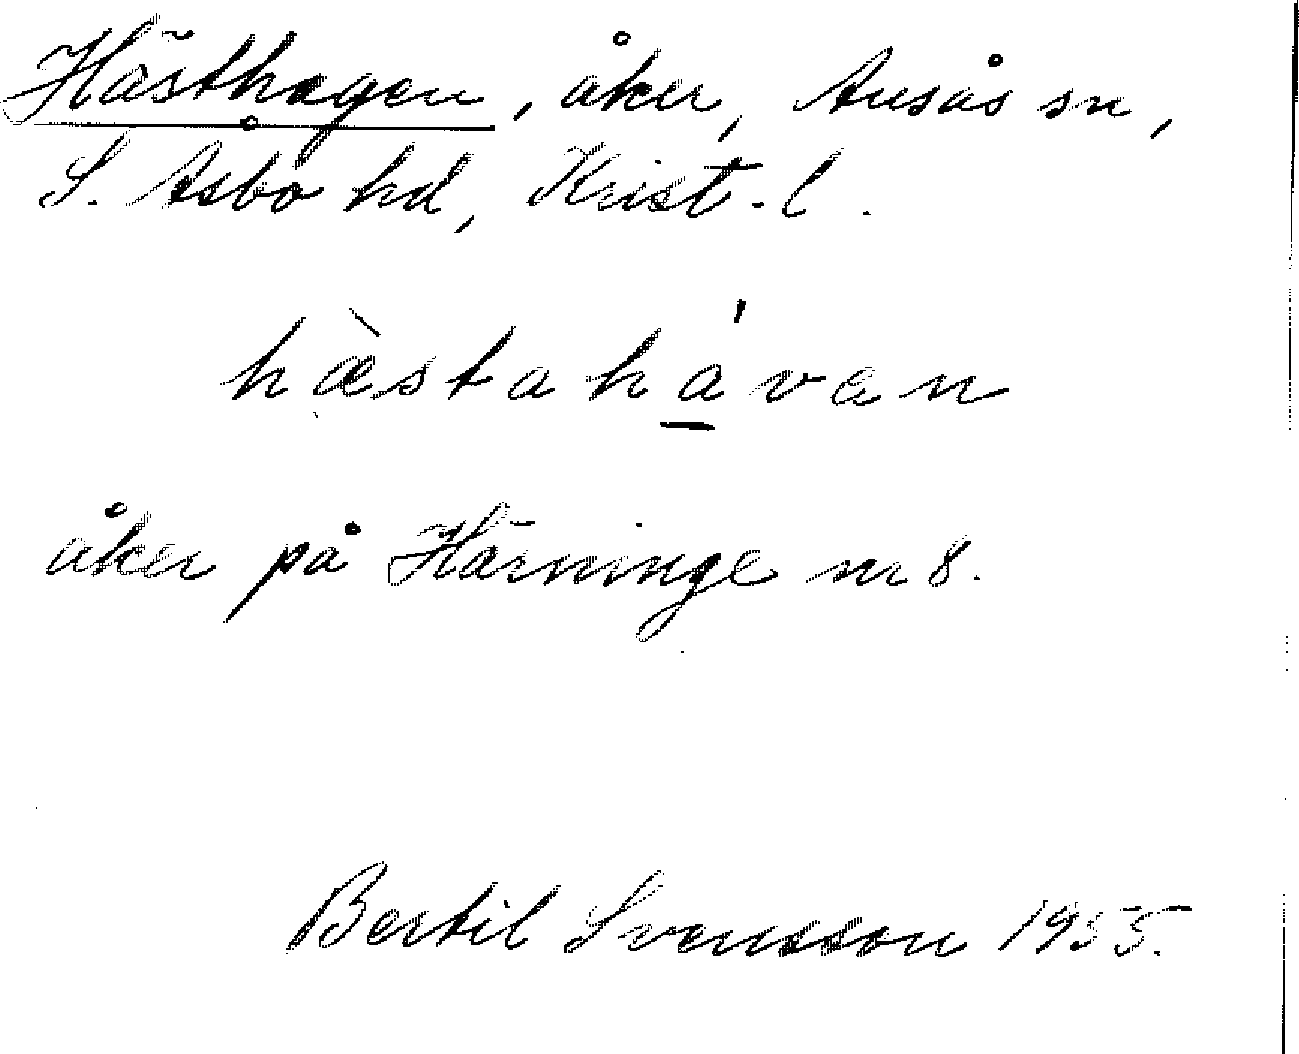 Hästhagen, åker, Ausås sn,
S. Åsbo hd, Krist. l.
hæ̀stahá̱van
åker på Härninge nr 8.
Bertil Svensson 1955.